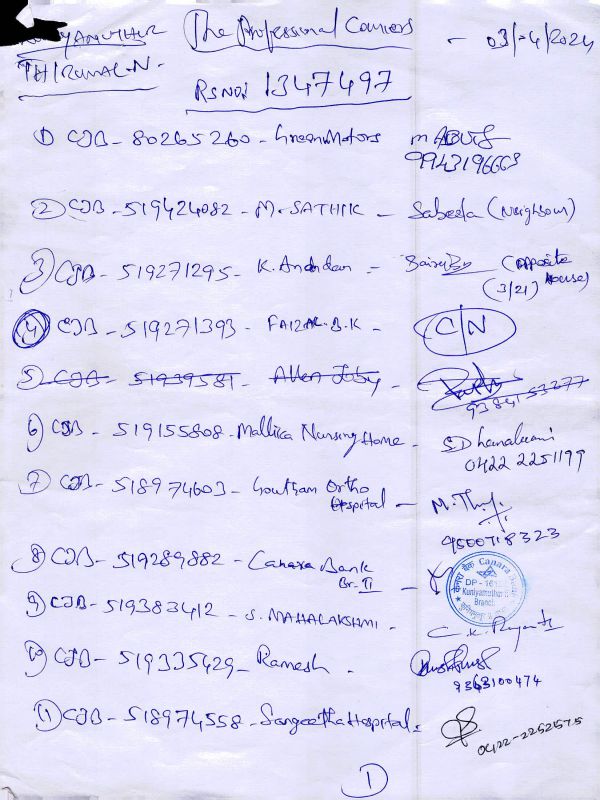 KUNIYAMUTHUR The Professional Couriers - 03/-4/2024
THIRUMAL-N-
RSNO: 1347497
1) CJB - 80265260 - Green Motors
9943196663
2) CJB - 519424082 - M. SATHIK - Sabeeda (Neighbour)
3) CJB - 519271295 - K. Anandan - (opposite
(3/21) house)
4) CJB - 519271393 - FAIZAL.B.K - C/N
5) CJB - 51939581 - Allen Joby -
9384153277
6) CJB - 519155808 - Mallica Nursing Home - SDhanalaxmi
0422 2251199
7) CJB - 518974603 - Goutham Ortho
Hospital - M. Thy
9500718323
8) CJB - 519289882 - Canara Bank
Br. II
Canara Bank
DP - 
Kuniyamuthur
Branch
9) CJB - 519383412 - S. MAHALAKSHMI -
10) CJB - 519335429 - Ramesh -
9363100474
11) CJB - 518974558 - Sangeetha Hospital -
0422-2252575
1